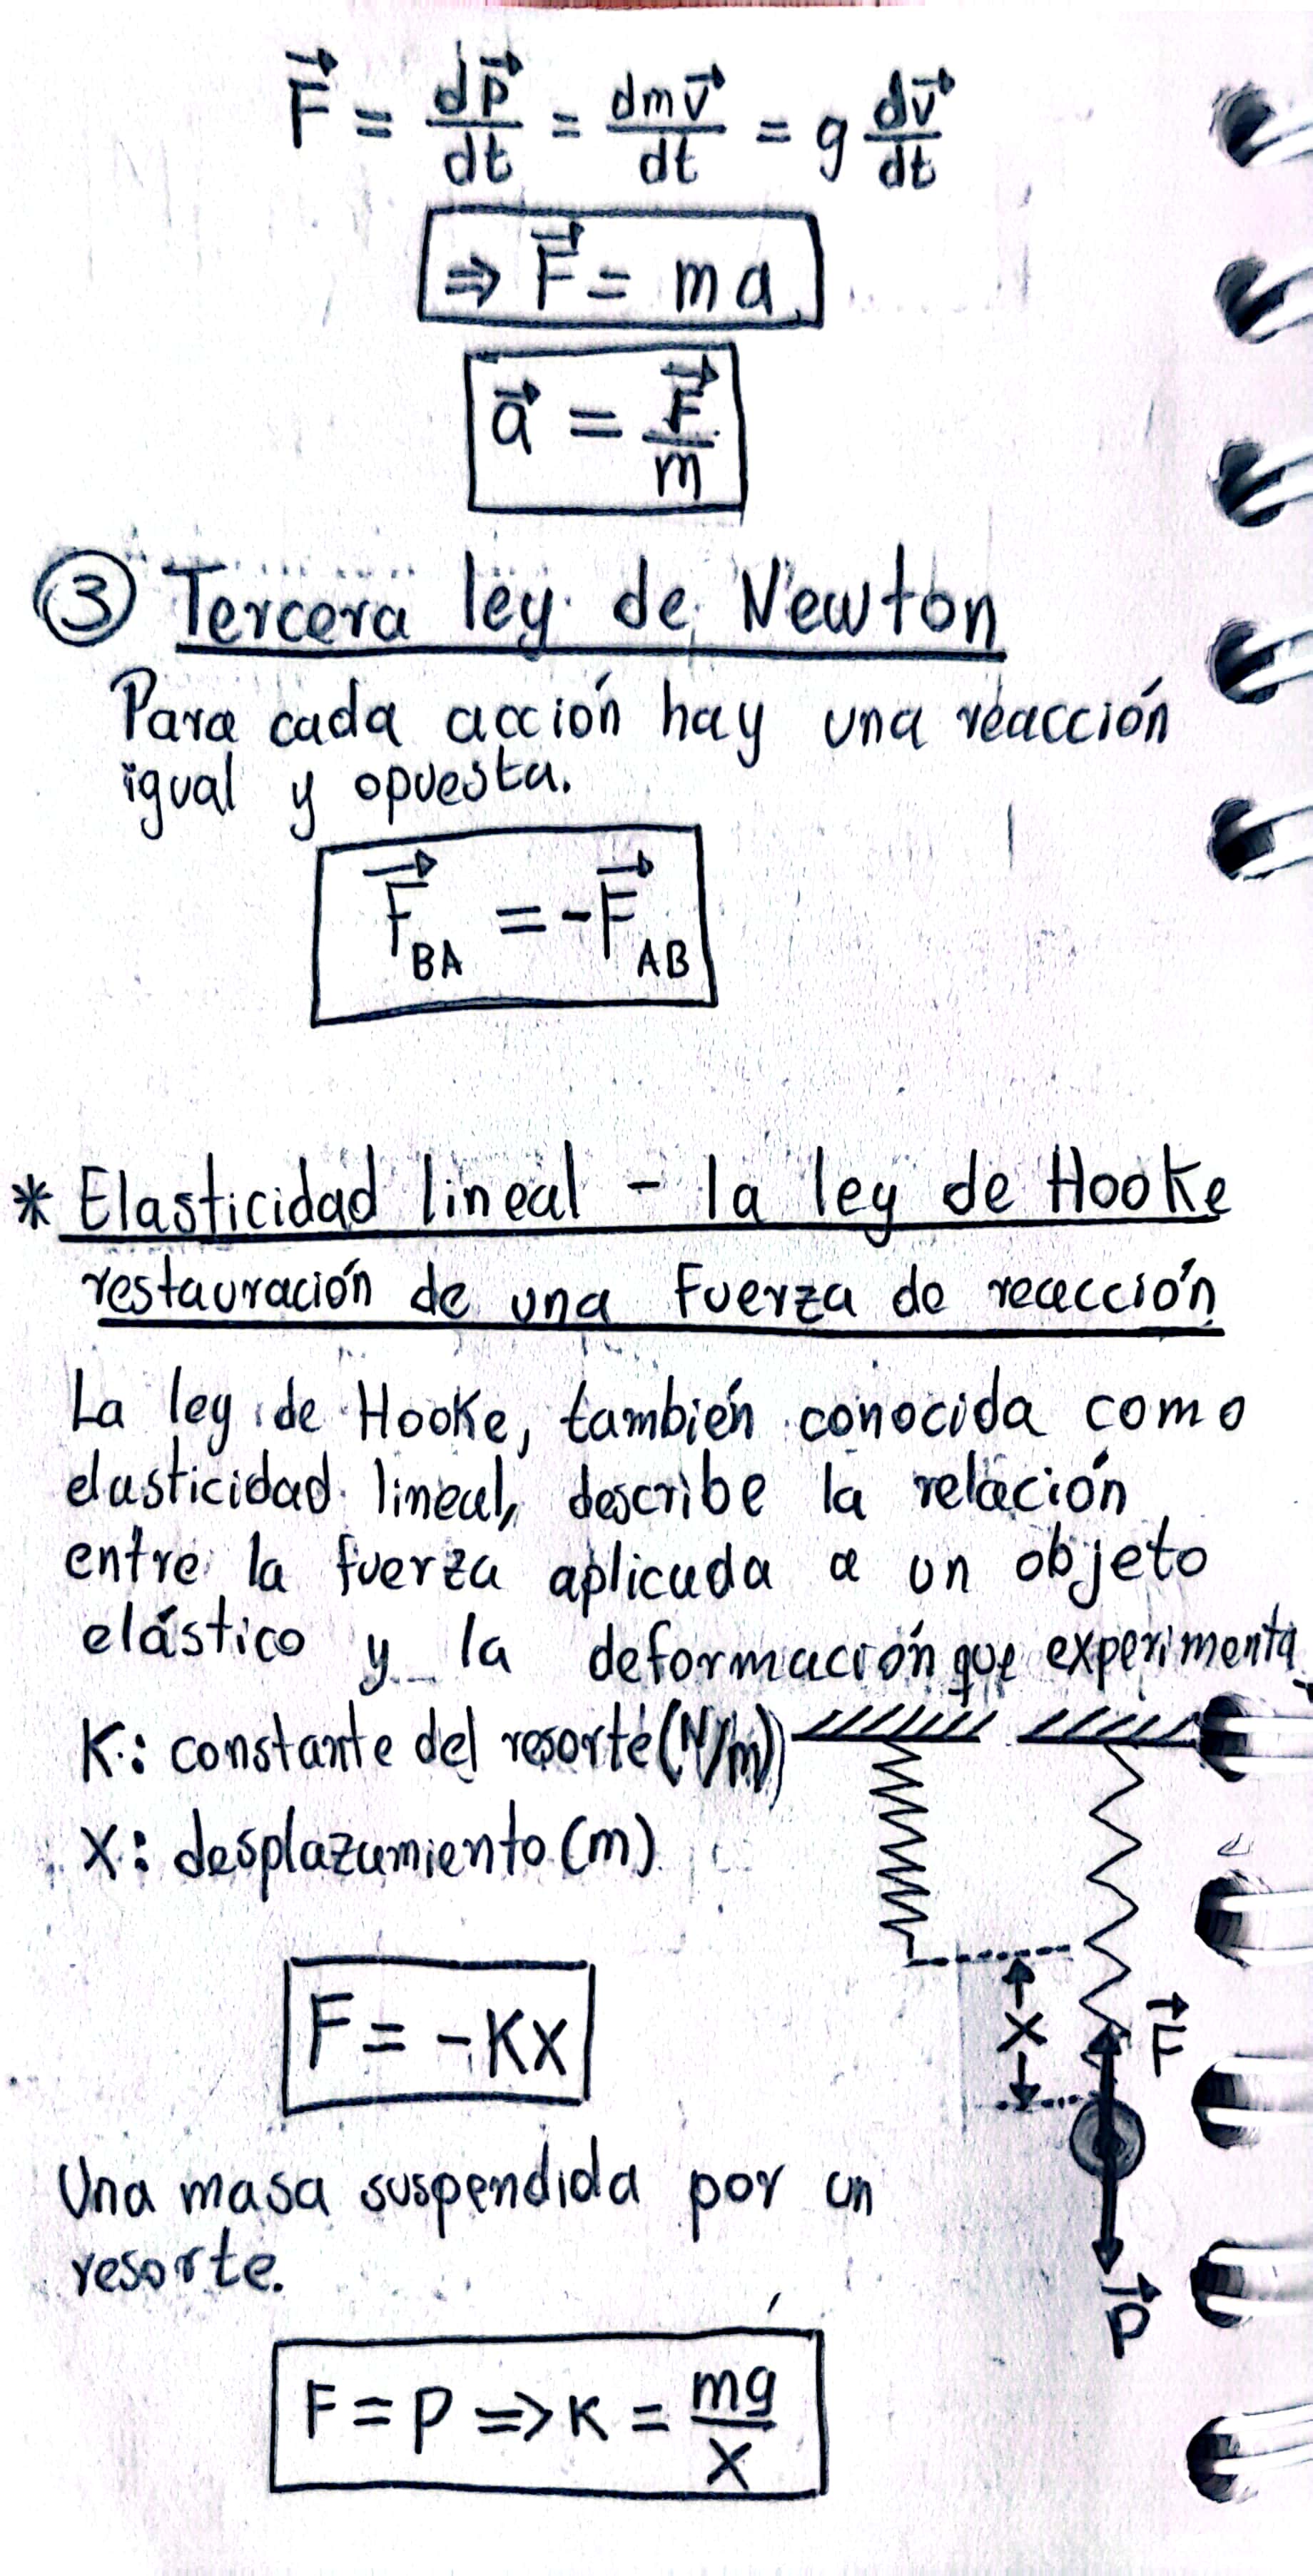 F⃗ = dP⃗/dt = dmv⃗/dt = g dv⃗/dt
⇒ F⃗ = ma
a⃗ = F⃗/m
③ Tercera ley de Newton
Para cada acción hay una reacción
igual y opuesta.
F⃗_BA = -F⃗_AB
* Elasticidad lineal - la ley de Hooke
restauración de una Fuerza de reacción
La ley de Hooke, también conocida como
elasticidad lineal, describe la relación
entre la fuerza aplicada a un objeto
elástico y la deformación que experimenta
K: constante del resorte (N/m)
X: desplazamiento (m)
X
F⃗
F = -Kx
Una masa suspendida por un
resorte.
P⃗
F = P => K = mg/X